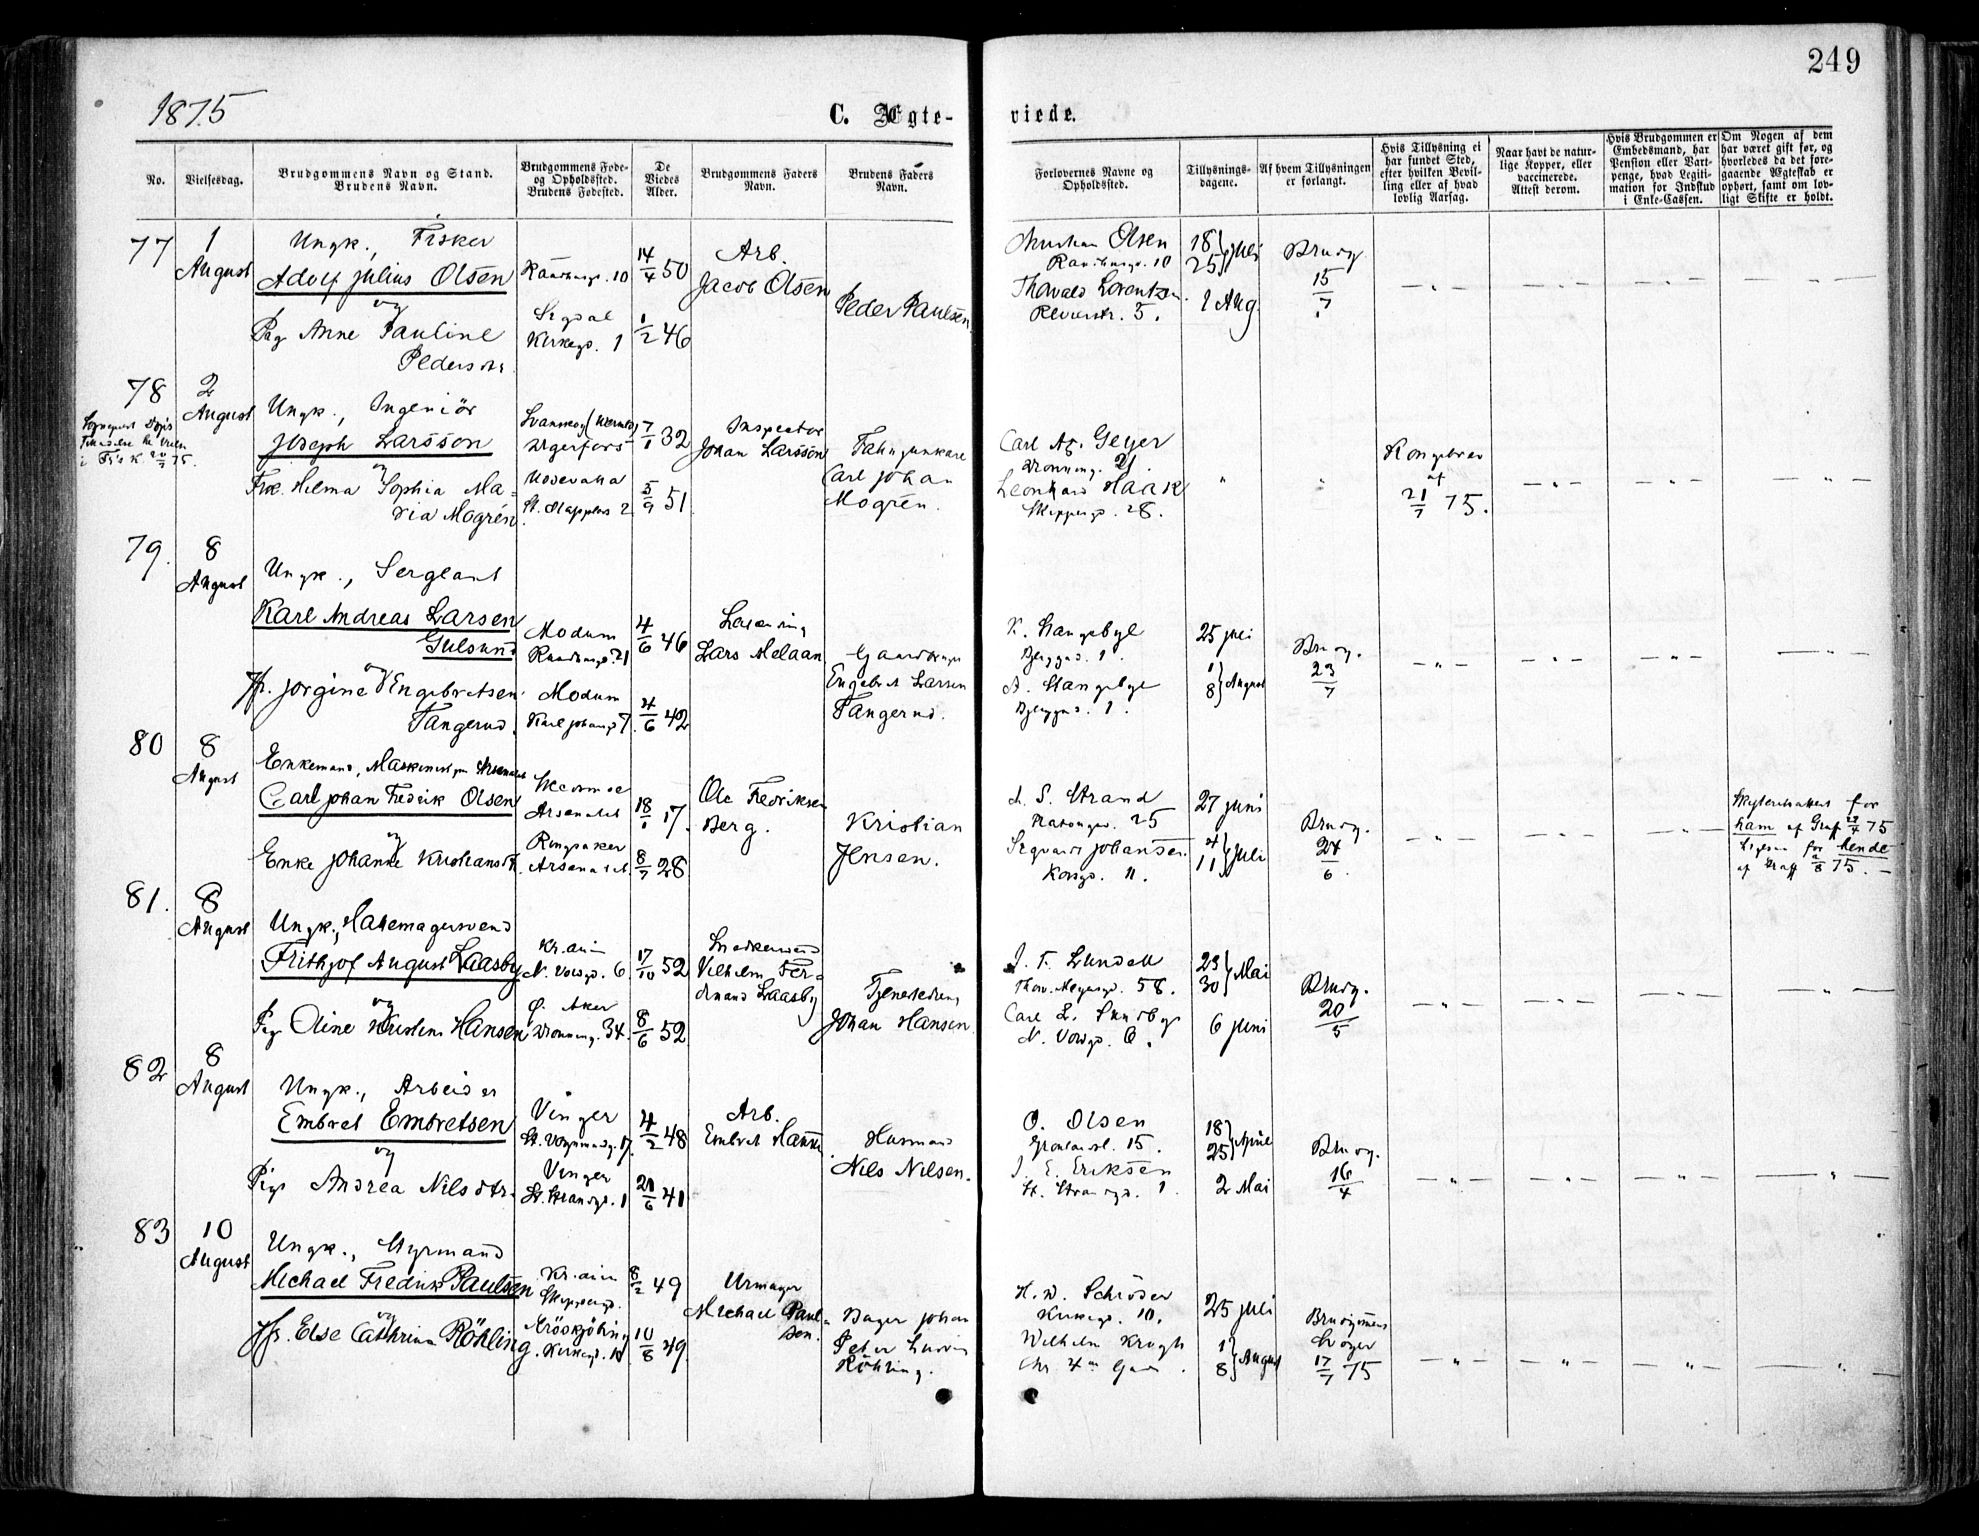 249
1875
C. Ægte-
viede.
No.
Vielsesdag.
Brudgommens Navn og Stand.
Brudens Navn.
Brudgommens Føde-
og Opholdssted.
Brudens Fødested.
De
Viedes
Alder.
Brudgommens Faders
Navn.
Brudens Faders
Navn.
Forlovernes Navne og
Opholdssted.
Tillysnings-
dagene.
Af hvem Tillysningen
er forlangt.
Hvis Tillysning ei
har fundet Sted,
efter hvilken Bevil-
ling eller af hvad
lovlig Aarsag.
Naar havt de natur-
lige Kopper, eller
vaccinerede.
Attest derom.
Hvis Brudgommen er
Embedsmand, har
Pension eller Vart-
penge, hvad Legiti-
mation for Indskud
i Enke-Cassen.
Om Nogen af dem
har været gift før, og
hvorledes da det fore-
gaaende Ægteskab er
ophørt, samt om lov-
ligt Skifte er holdt.
77
1
August
Ungk., Fisker
Adolf Julius Olsen
og
Pig Anne Pauline
Pedersdtr
10
Sigdal
Kirkegd. 1
14/4 50
1/2 46
Arb.
Jacob Olsen
Peder Paulsen
Olsen
10
Thorvald Lorentzen
5.
18 } Juli
25
1 Aug.
Brudg
15/7
78
2
August
Ungk., Ingeniör
Joseph Larsson
og
Frk. Hilma Sophia Ma-
ria Mogrén
7/1 32
5/9 51
Inspector
Johan Larsson
Fahnjunkare
Carl Johan
Mogrén.
Carl Geijer
21.
Leonhard Haak
Skippergd. 28.
Kongebrev
af
21/7 75.
79.
8
August
Ungk., Sergeant
Karl Andreas Larsen
Gulsund
og
Jfr. Jorgine Engebretsen
Tangerud.
Modum
21
Modum
Karl Johansgd 7
4/6 46
4/6 42
Lars Melaan
Engebret Larsen
Tangerud.
K. Hangebye
1.
A. Hangebye
1.
25 Juli
1 } August
8
Brudg.
23/7
80
8
August
Enkemand,
Carl Johan Fredrik Olsen
og
Enke Johanne
Arsenalet
Ringsaker
Arsenalet
18/1 17.
8/7 28
Ole Fredriksen
Berg.
Kristian
Jensen.
L. S. Strand
25
Sigvard Johansen
Korsgd. 11.
27 Juni
4 } Juli
11
Brudg.
24/6
for
ham af Graff 29/4 75
Ligesaa for hende
af Graff 75.
81.
8
August
Ungk., Hattemagersvend
Frithjof August Laasby
og
Pige Oline Kristine Hansen
Kr.ania
N. Voldgd. 6
Ø. Aker
Dronning. 34.
17/10 52
8/6 52
Snedkersvend
Vilhelm Fer-
dinand Laasby
Johan Hansen
J. T. Lundell
Thorv. Meyersgd. 58.
Carl L. Sundby
N. Voldgd. 6.
23 } Mai
30
6 Juni
Brudg.
20/5
82
8
August
Ungk., Arbeider
Embret Embretsen
og
Pige Andrea Nilsdtr.
Vinger
17.
Vinger
St. Strandgd. 1
4/2 48
21/6 41
Arb.
Embret Hansen
Husmand
Nils Nilsen.
O. Olsen
15.
J. E. Eriksen
St. Strandgd. 1.
18 } April
25
2 Mai
Brudg.
16/4
83
10
August
Ungk., Styrmand
Michael Fredrik Paulsen
og
Jfr. Else Cathrina Röhling
Kr.ania
Skippergd.
Äröskjöbing
Kirkegd. 10
8/2 49
10/8 49.
Urmager
Michael Paul-
sen.
Bager Johan
Peter
Röhling.
H. W. Schröder
Kirkegd. 10.
Wilhelm Krogh
25 Juli
1 } August
8
Brudgommens
Svoger
17/7 75